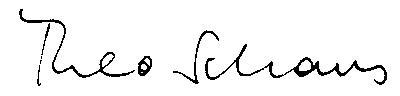 Theo Schaus